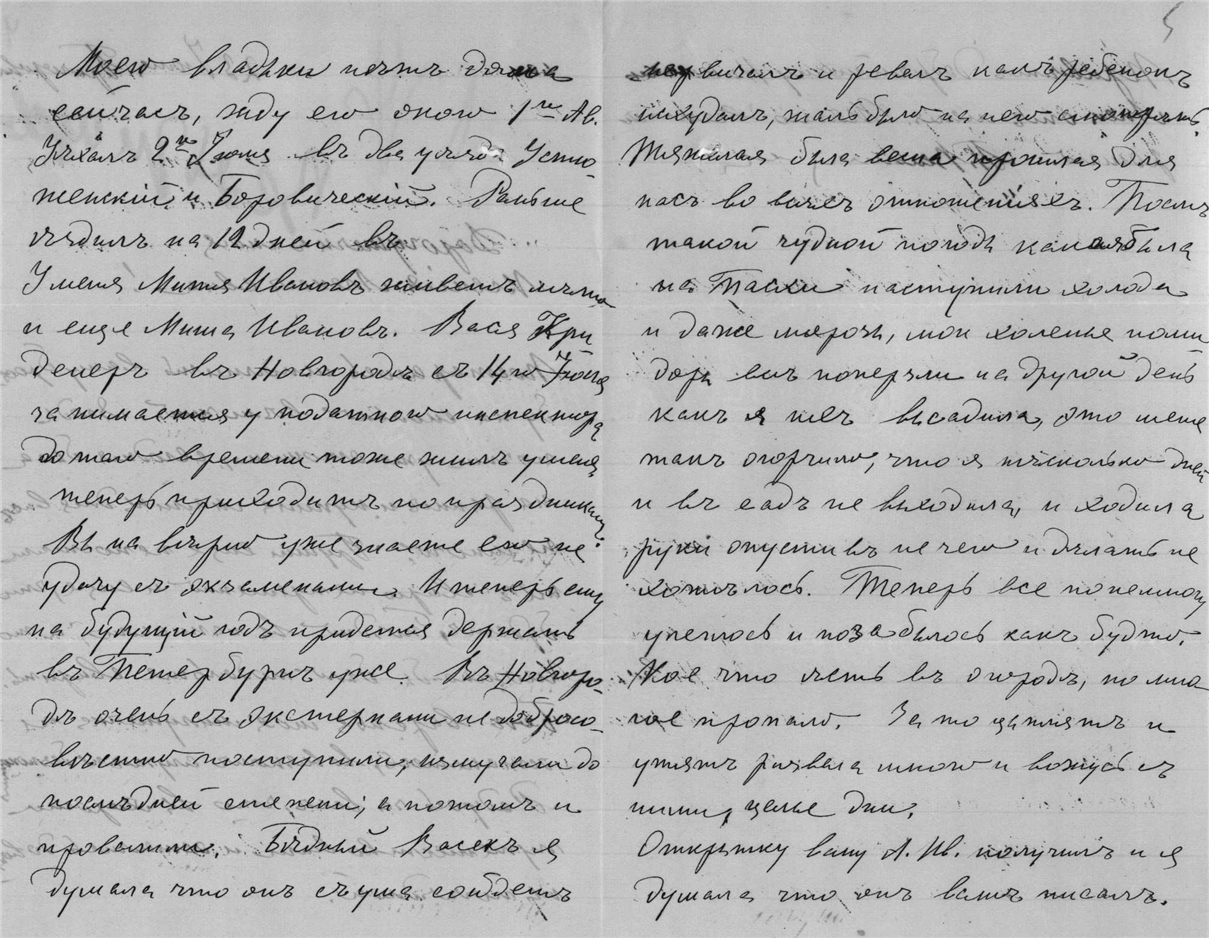 Моего владыки нѣтъ дома
сейчасъ, жду его около 1го Ав.
Уѣхалъ 2го Іюля въ два уѣзда Устю
женскій и Боровическій. Раньше
ѣздилъ на 12 дней въ
У меня Митя Ивановъ живетъ лѣто
и еще Миша Ивановъ. Вася Кри
денеръ въ Новгородѣ съ 14го Іюля
занимается у податного инспектора
до того времени тоже жилъ у меня,
теперь приходитъ по праздникамъ.
Вы на вѣрно уже знаете его не
удачу съ экзаменами. И теперь ему
на будущій годъ придется держать
въ Петербургѣ уже. Въ Новгоро-
дѣ очень съ экстернами не добросо-
вѣстно поступили, измучали до
послѣдней степени, а потомъ и
провалили. Бѣдный Васекъ я
думала что онъ съ ума сойдетъ
нервничалъ и ревелъ какъ ребенокъ
похудалъ, жаль было на него смотрѣть.
Тяжелая была весна прошлая для
насъ во всѣхъ отношеніяхъ. Послѣ
такой чудной погоды какая была
на Пасхи наступили холода
и даже морозы, мои холеные поми
доры всѣ померзли на другой день
какъ я ихъ высадила, это меня
такъ огорчило, что я нѣсколько дней
и въ садъ не выходила, и ходила
руки опустивъ не чего и дѣлать не
хотѣлось. Теперь все понемногу
улеглось и позабылось какъ будто.
Кое что есть въ огородѣ, но мно
гое пропало. За то цыплятъ и
утятъ развела много и вожусь съ
ними, целые дни.
Открытку вашу А. Ив. получилъ и я
думала что онъ вамъ писалъ.